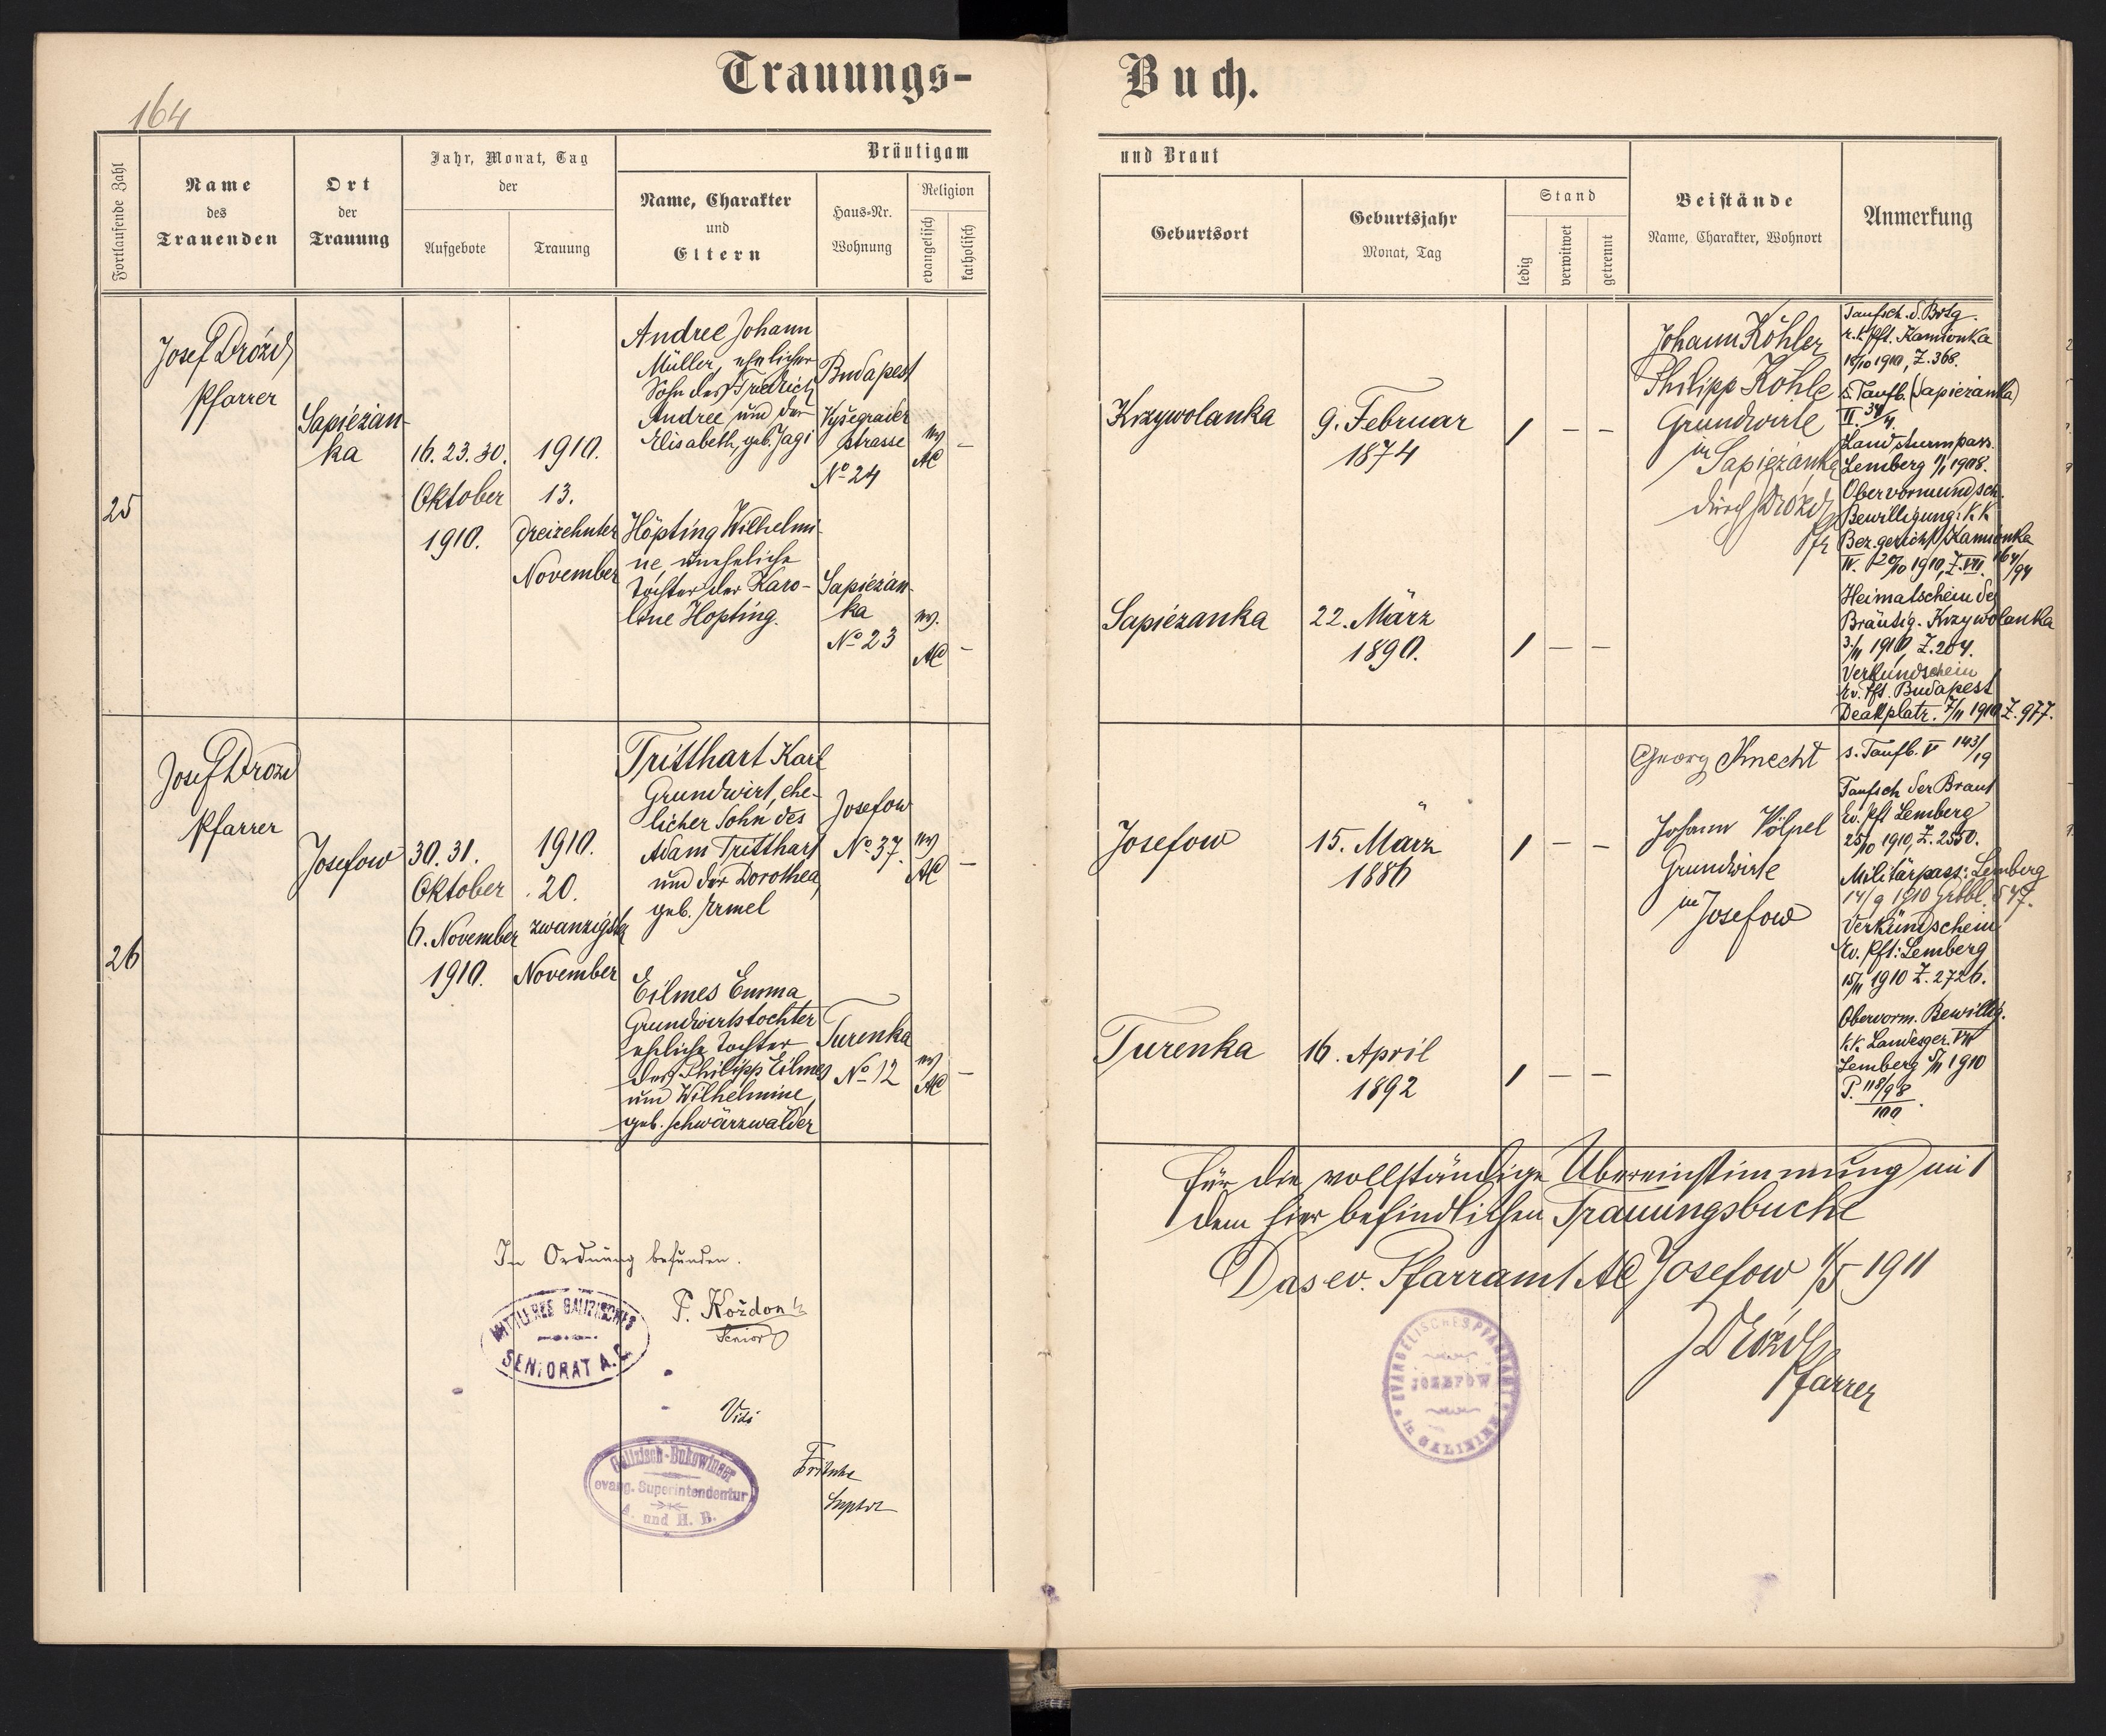 Trauungs-
Buch.
164
Fortlaufende Zahl
Name
des
Trauenden
Ort
der
Trauung
Jahr, Monat, Tag
der
Aufgebote
Trauung
Bräutigam
Name, Charakter
und
Eltern
Haus-Nr.
Wohnung
Religion
evangelisch
katholisch
und Braut
Geburtsort
Geburtsjahr
Monat, Tag
Stand
ledig
verwitwet
getrennt
Beistände
Name, Charakter, Wohnort
Anmerkung
25
Josef Drózd
Pfarrer
Sapiezan-
ka
16. 23. 30.
Oktober
1910.
1910.
13.
dreizehnter
November
Andree Johann
Müller, ehelicher
Sohn des Friedrich
Andree und der
Elisabeth, geb. Jagi
Budapest
strasse
No 24
ev
AC
–
Höpting Wilhelmi-
ne, uneheliche
Tochter der Karo-
line Höpting.
Sapiezan-
ka
No 23
ev.
AC
–
Krzywolanka
9. Februar
1874
/ – –
Sapiezanka
22. März
1890.
/ – –
Johann Köhler
Philipp Köhle
Grundwirte
in Sapiezanka
durch Drózd
Pfr
Taufsch. d. Brtg.
r. k. Pft. Kamionka
18/10 1910, Z. 368.
s. Taufb. (Sapiezanka)
II. 34/4.
Landsturmpass.
Lemberg 1/1 1908.
Obervormundsch.
Bewilligung: k. k.
Bez. gericht Kamionka
IV. 20/10 1910, Z. VII. 164/94
Heimatschein des
Bräutig. Krzywolanka
3/11 1910, Z. 204.
Verkündschein
Ev. Pft. Budapest
Deakplatz. 7/11 1910 Z. 977.
26
Josef Drozd
Pfarrer
Josefow
30. 31.
Oktober
6. November
1910.
1910.
20.
zwanzigster
November
Tritthart Karl
Grundwirt, ehe-
licher Sohn des
Adam Tritthart
und der Dorothea,
geb. Ermel
Josefow
No 37.
ev
AC
–
Eilmes Emma
Grundwirtstochter
eheliche Tochter
des Philipp Eilmes
und Wilhelmine,
geb. Schwärzwalder
Turenka
No 12
ev
AC
–
Josefow
15. März
1886
/ – –
Turenka
16. April
1892
/ – –
Georg Knecht
Johann Völpel
Grundwirte
in Josefow
s. Taufb. V 143/19
Taufsch der Braut
Ev. Pft Lemberg
25/10 1910, Z. 2550.
Militärpass: Lemberg
14/9 1910 Grbbl. 547.
Verkündschein
Ev. Pft: Lemberg
15/11 1910 Z. 2726.
Obervorm. Bewillig.
k. k. Landesger. VII
Lemberg 5/11 1910
P. 118/98
100.
Für die vollständige Übereinstimmung mit
dem hier befindlichen Trauungsbuche
Das ev. Pfarramt AC Josefow 1/5 1911
JDrózd
Pfarrer
EVANGELISCHES PFARRAMT
JOZEFOW
in GALIZIEN
In Ordnung befunden.
MITTLERES GALIZISCHES
SENIORAT A. C.
F. Koždoň
Senior
Vidi
Galizisch-Bukowinaer
evang. Superintendentur
A. und H. B.
Fritsche
Suptdt